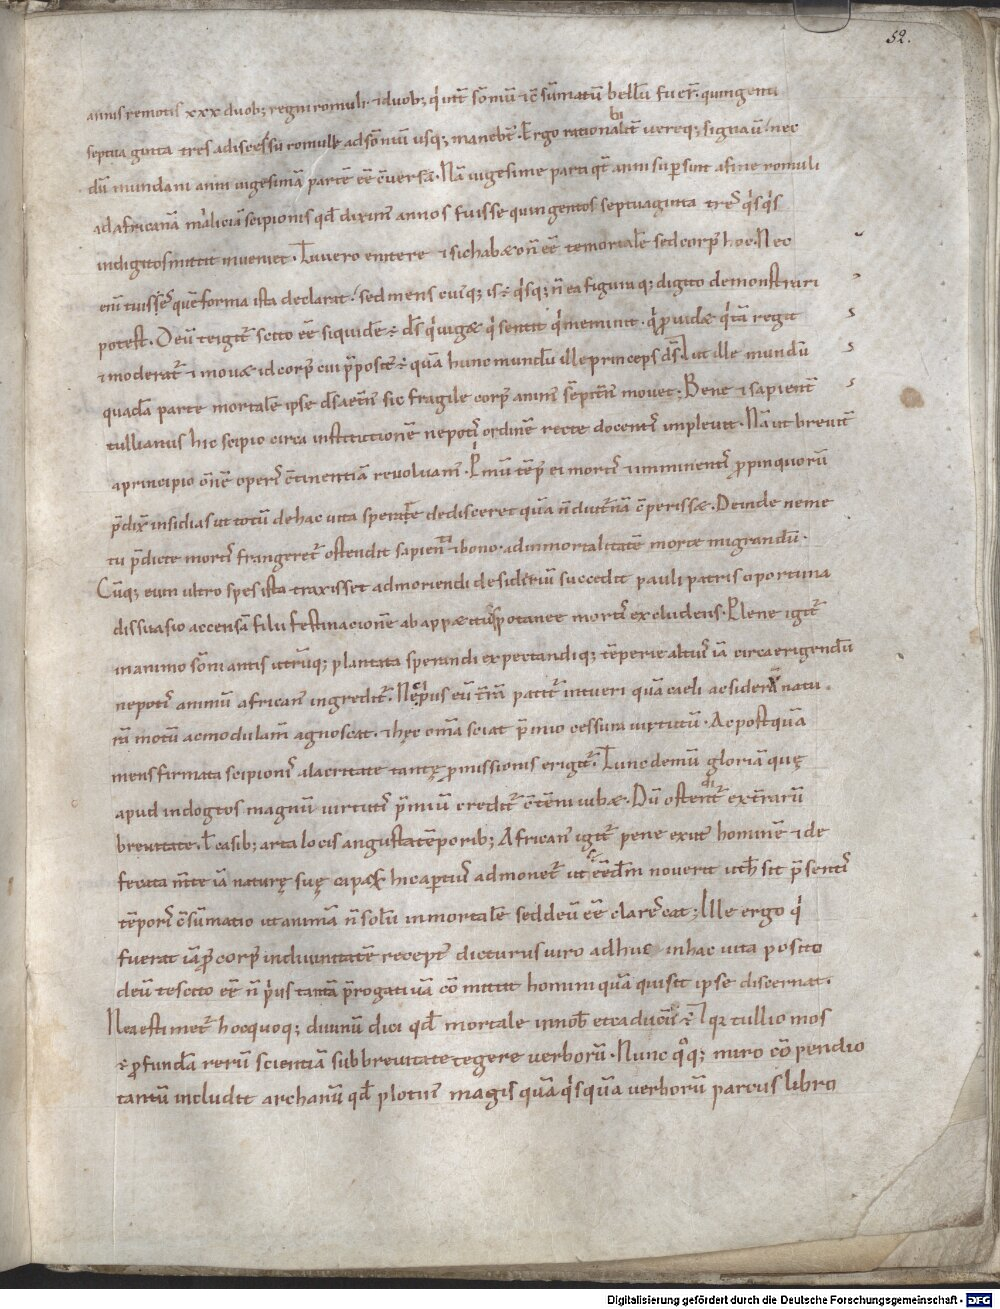 52.
annis remotis xxx duob; regni romuli. & duob; q̓ int̄ sōniū & c̄sūmatū bellū fuer̄. quingenti
septuaginta tres adiscessu romuli adsōniū usq; manebt̄. Ergo rationabilit̄ uereq; signauī nec
dū mundani anni uigesimā partē eē c̄uersā. Nā uigesime parti qt̄ anni supersint afine romuli
ad africanā militiā scipionis qd̄ diximꝰ annos fuisse quingentos septuaginta tres q̓sq̓s
indigitos mittit inueniet. Tu uero enitere & sic habæ on̄ eē te mortalē sed corpꝰ hoc. Nec
eni tu is es quē forma ista declarat. sed mens cuiꝰq; is ē q̓sq; n̄ ea figura q; digito demonstrari
potest. Deū te igit̄ scito eē siquidē ē ds̄ q̓ uigæ q̓ sentit q̓ meminit. q̓ p̄uidæ q̓ tā regit
& moderat̄ & mouæ id corpꝰ cui p̄positꝰ ē quā hunc mundū ille princeps ds̄. & ut ille mundū
quadā parte mortalē ipse ds̄ aetn̄ꝰ sic fragile corpꝰ animꝰ sēpitn̄ꝰ mouet. Bene & sapient̄
tullianus hic scipio circa institutionē nepotis ordinē recte docentis impleuit. Nā ut breuit̄
aprincipio ōnē operis c̄tinentiā reuoluamꝰ. P̓mū tēpꝰ ei mortis & imminentis p̄pinquorū
p̄dix̄ insidias ut totū dehac uita sperare dedisceret quā n̄ diut̄nā c̄perissæ. Deinde neme
tu p̄dicte mortis frangeret̄ ostendit sapienti & bono. adinmortalitatē morte migrandū.
Cūq; eum ultro spes ista traxisset admoriendi desideriū succedit pauli patris oportuna
dissuasio accensā filii festinacionē ab appætitu spotanee mortis excludens. Plene igit̄
inanimo sōniantis utrūq; plantata sperandi expectandiq; tēperie altiꝰ iā circa erigendū
nepotis animū africanꝰ ingredit̄. Nec p̓us eū t̄rā patit̄ intueri quā caeli ac siderū natu
rā motū acmodulamꝰ agnoscat. & hęc omā sciat p̄mio cessura uirtutū. Acpostquā
mens firmata scipionis alacritate tantę p̄missionis erigit̄. Tunc demū gloriā quę
apud indoctos magnū uirtutis p̄miū credit̄ c̄tēni iubæ. Dū ostendit̄ ext̄rarū
breuitate. l̄ casib; arta locis angusta tēporib; Africanꝰ igit̄ pene exutꝰ hominē & de
fecata mt̄e iā naturę suę capax hic aptiꝰ admonet̄ ut eēdm̄ nouerit ut h̓ sit p̄sentis
tēporis c̄sūmatio ut animā n̄ solū inmortalē sed deū eē clarescat; Ille ergo q̓
fuerat iā p̄ corpꝰ indiuinitatē receptꝰ dicturus uiro adhuc inhac uita posito
deū te scito eē n̄ p̓us tantā p̄rogatiuā cōmittit homini quā qui sit ipse discernat.
Nec aestimet̄ hoc quoq; diuinū dici qd̄ mortale innob̄ et caducū ē. & qr tullio mos
ē p̄fundā rerū scientiā sub breuitate tegere uerborū. Nunc q°q; miro cōpendio
tantū includit archanū qd̄ plotinꝰ magis quā q̓squā uerborū parcus libro
Digitalisierung gefördert durch die Deutsche Forschungsgemeinschaft - DFG